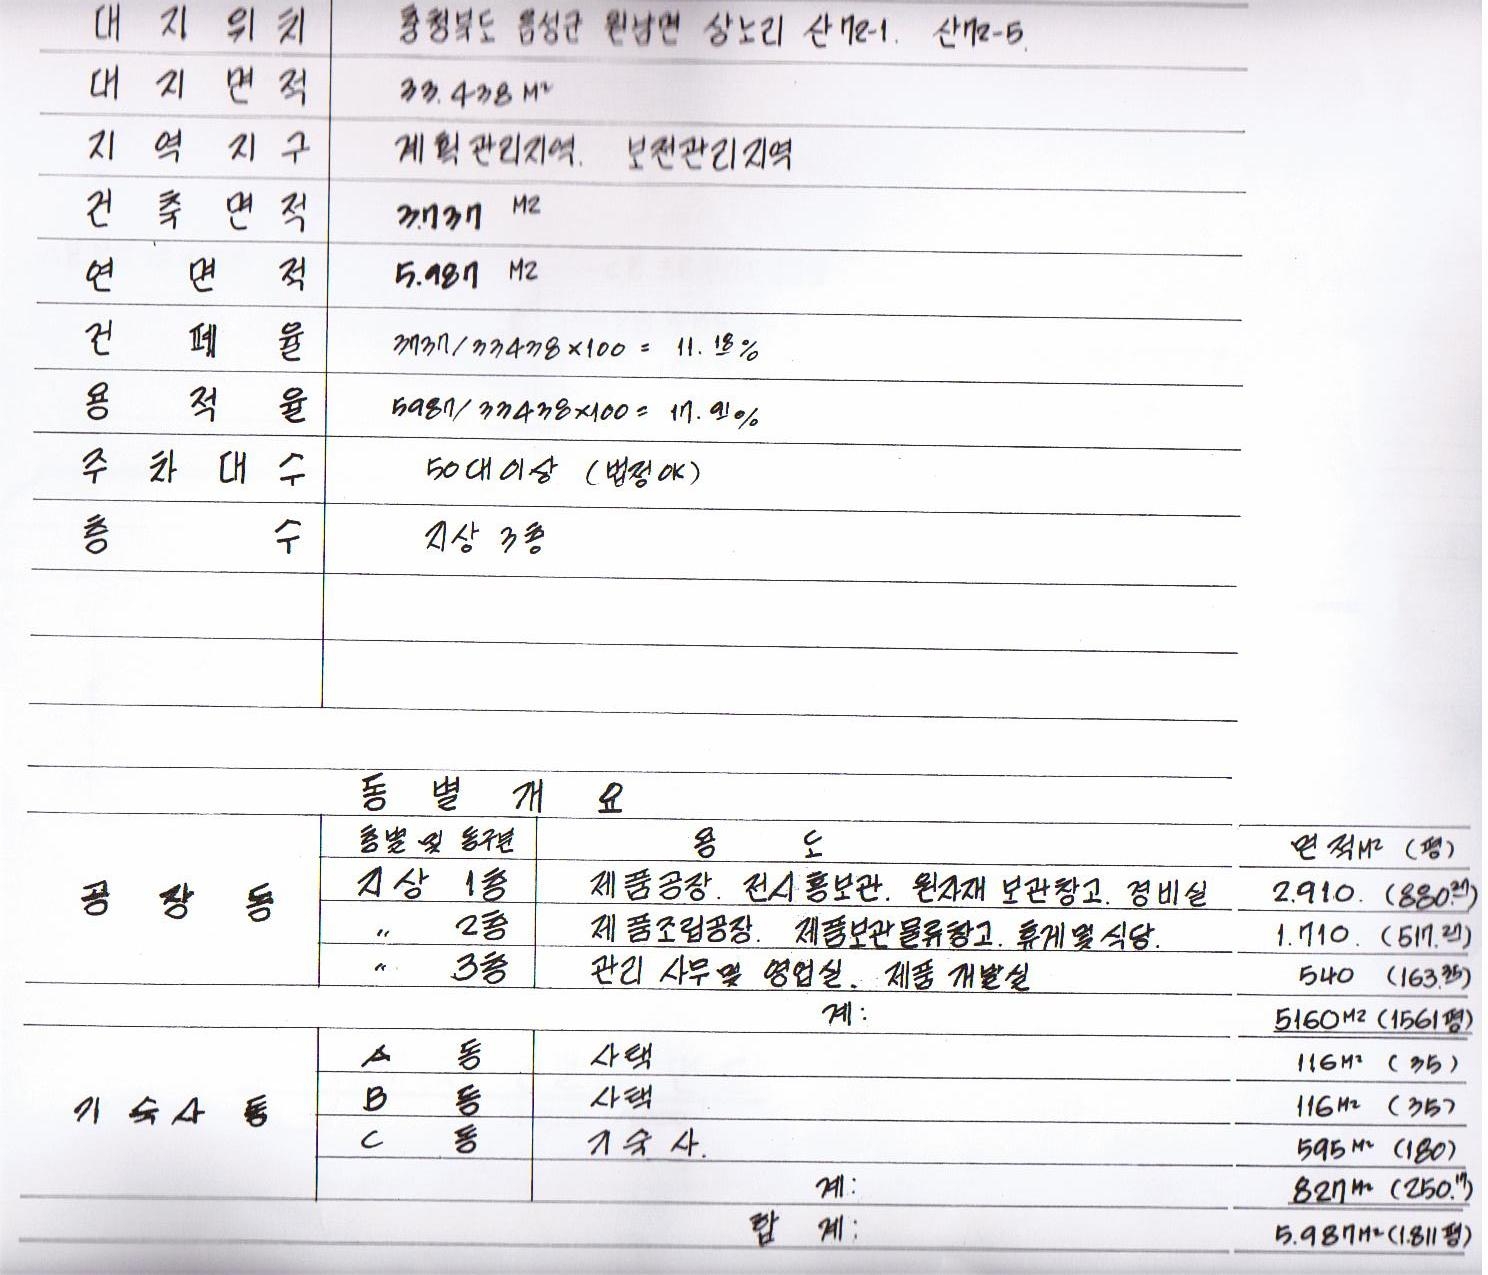 대지위치 충청북도 음성군 원남면 상노리 산72-1. 산72-5.
대지면적 33.438 M²
지역지구 계획관리지역. 보전관리지역
건축면적 3.737 M2
연면적 5.987 M2
건폐율 3737/33438×100 = 11.18%
용적율 5987/33438×100 = 17.91%
주차대수 50대이상 (법정OK)
층수 지상 3층
동별개요
층별 및 동구분 용도 면적M² (평)
공장동 지상 1층 제품공장. 전시홍보관. 원자재 보관창고. 경비실 2.910. (880.27)
〃 2층 제품조립공장. 제품보관물류창고. 휴게및식당. 1.710. (517.27)
〃 3층 관리 사무및 영업실. 제품 개발실 540 (163.35)
계: 5160M2 (1561평)
A 동 사택 116M² (35)
기숙사동 B 동 사택 116M² (35)
C 동 기숙사. 595M² (180)
계: 827M² (250.17)
합계: 5.987M² (1.811평)